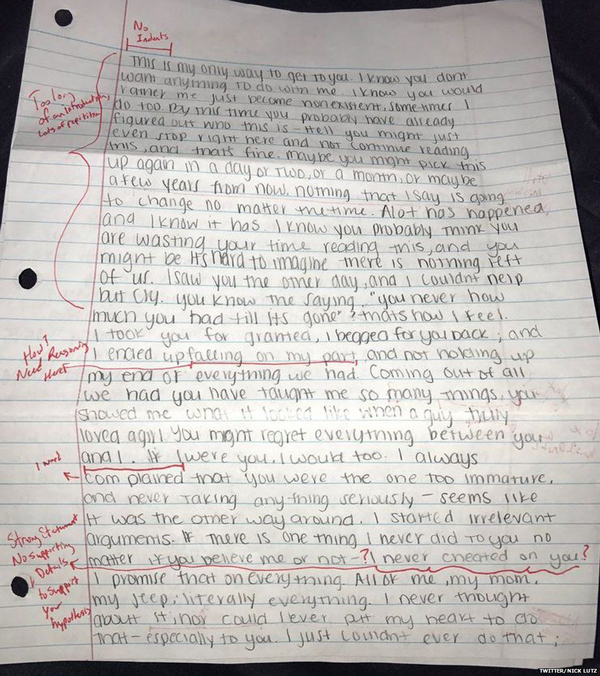 No
Indents
This is my only way to get to you. I know you dont
want anything to do with me. I know you would
rather me just become nonexistent, sometimes I
do too. By this time you probably have already
figured out who this is - Hell you might just
even stop right here and not continue reading
this, and thats fine. maybe you might pick this
up again in a day or two, or a month, or maybe
a few years from now. nothing that I say is going
to change no matter the time. Alot has happened,
and I know it has. I know you probably think you
are wasting your time reading this, and you
might be. Its hard to imagine there is nothing left
of us. I saw you the other day, and I couldnt help
but cry. you know the saying, "you never how
much you had till its gone"? thats how I feel.
I took you for granted, I begged for you back; and
I ended up falling on my part, and not holding up
my end of everything we had. Coming out of all
we had you have taught me so many things, you
showed me what it looked like when a guy truly
loved a girl. You might regret everything between you
and I. If I were you, I would too. I always
complained that you were the one too immature,
and never taking anything seriously - seems like
it was the other way around. I started irrelevant
arguments. If there is one thing I never did to you no
matter if you believe me or not -? I never cheated on you?
I promise that on everything. All of me, my mom,
my step; literally everything. I never thought
about it, nor could I ever put my heart to do
that - especially to you. I just couldnt ever do that;
Too long
of an introduction,
lots of repitition
How?
Need Reasoning
Here!
Strong Statement
No supporting
Details
to support
your
hypothesis
TWITTER/NICK LUTZ